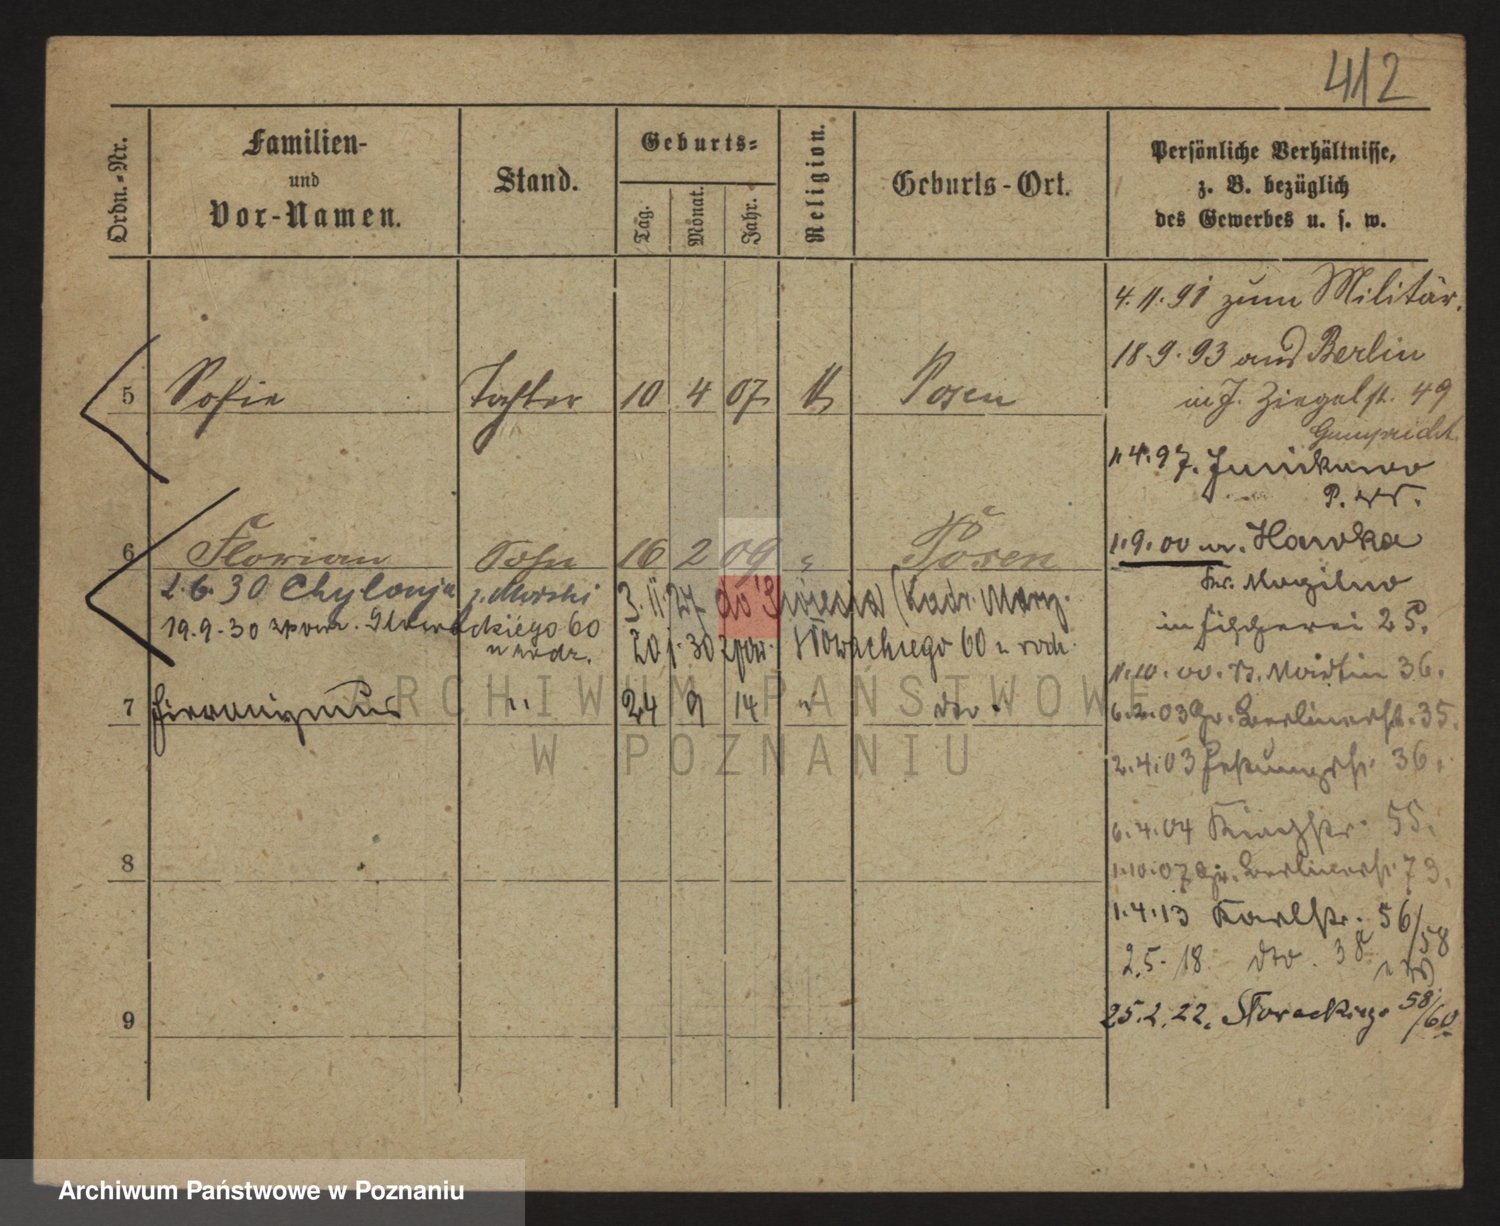 412
Ordn.-Nr.
Familien-
und
Vor-Namen.
Stand.
Geburts-
Tag.
Monat.
Jahr.
Religion.
Geburts-Ort.
Persönliche Verhältnisse,
z. B. bezüglich
des Gewerbes u. s. w.
4.11.91 zum Militär.
18.9.93 aus Berlin
Ziegelst. 49
5 Sofie Tochter 10 4 07 Posen
1.4.97. Junikowo
P. W.
1.9.00 n. Hawka
6 Florian Sohn 16 2 09 " Posen
Kr. Mogilno
2.6.30 Chylonja p. Morski 3.11.27 do (Kadr. Mary.
in Fischerei 25.
19.9.30 Słowackiego 60
u rodz.
20.1.30 Słowackiego 60 u rodz.
1.10.00. St. Martin 36.
7 Hieronymus " 24 9 14 " dto.
6.2.03 Gr. Berlinerst. 35.
2.4.03 Festungsstr. 36.
6.4.04 55.
8
1.10.07 Gr. Berlinerst. 73.
1.4.13 Karlstr. 56/58
2.5.18 dto. 38
9
25.2.22. 58/60
ARCHIWUM PAŃSTWOWE
W POZNANIU
Archiwum Państwowe w Poznaniu